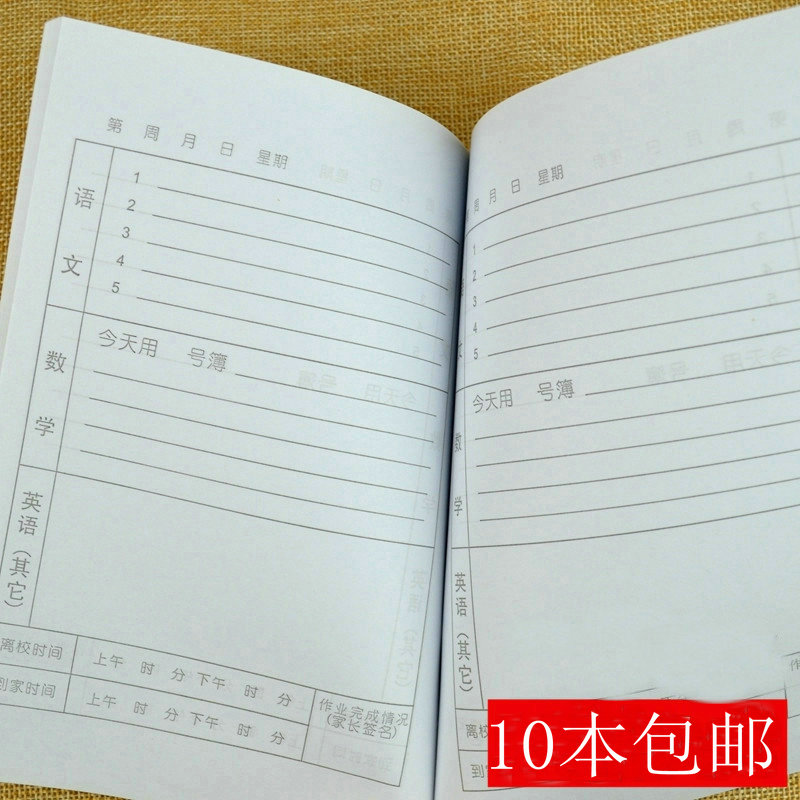 第 周 月 日 星期
语文
1
2
3
4
5
数学
今天用 号簿
英语(其它)
离校时间 上午 时 分 下午 时 分
到家时间 上午 时 分 下午 时 分
作业完成情况
(家长签名)
周 月 日 星期
1
2
3
4
5
文
今天用 号簿
数学
英语(其它)
离校
到家
作
10本包邮